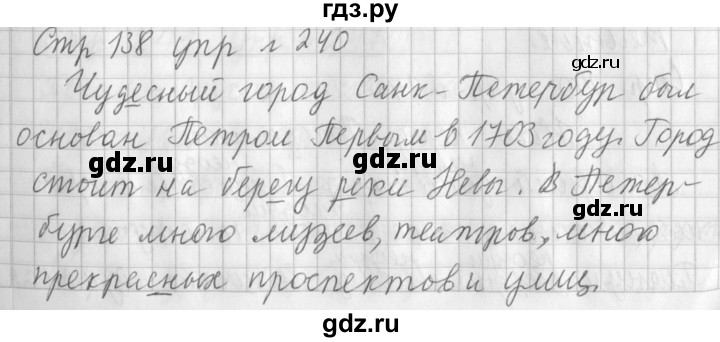 гдз.ру
Стр 138 упр г 240
Чудесный город Санк-Петербур был
основан Петром Первым в 1703 году. Город
стоит на берегу реки Невы. В Петер-
бурге много музеев, театров, много
прекрасных проспектов и улиц.
gdz.ru
gdz.ru
gdz.ru
gdz.ru
gdz.ru